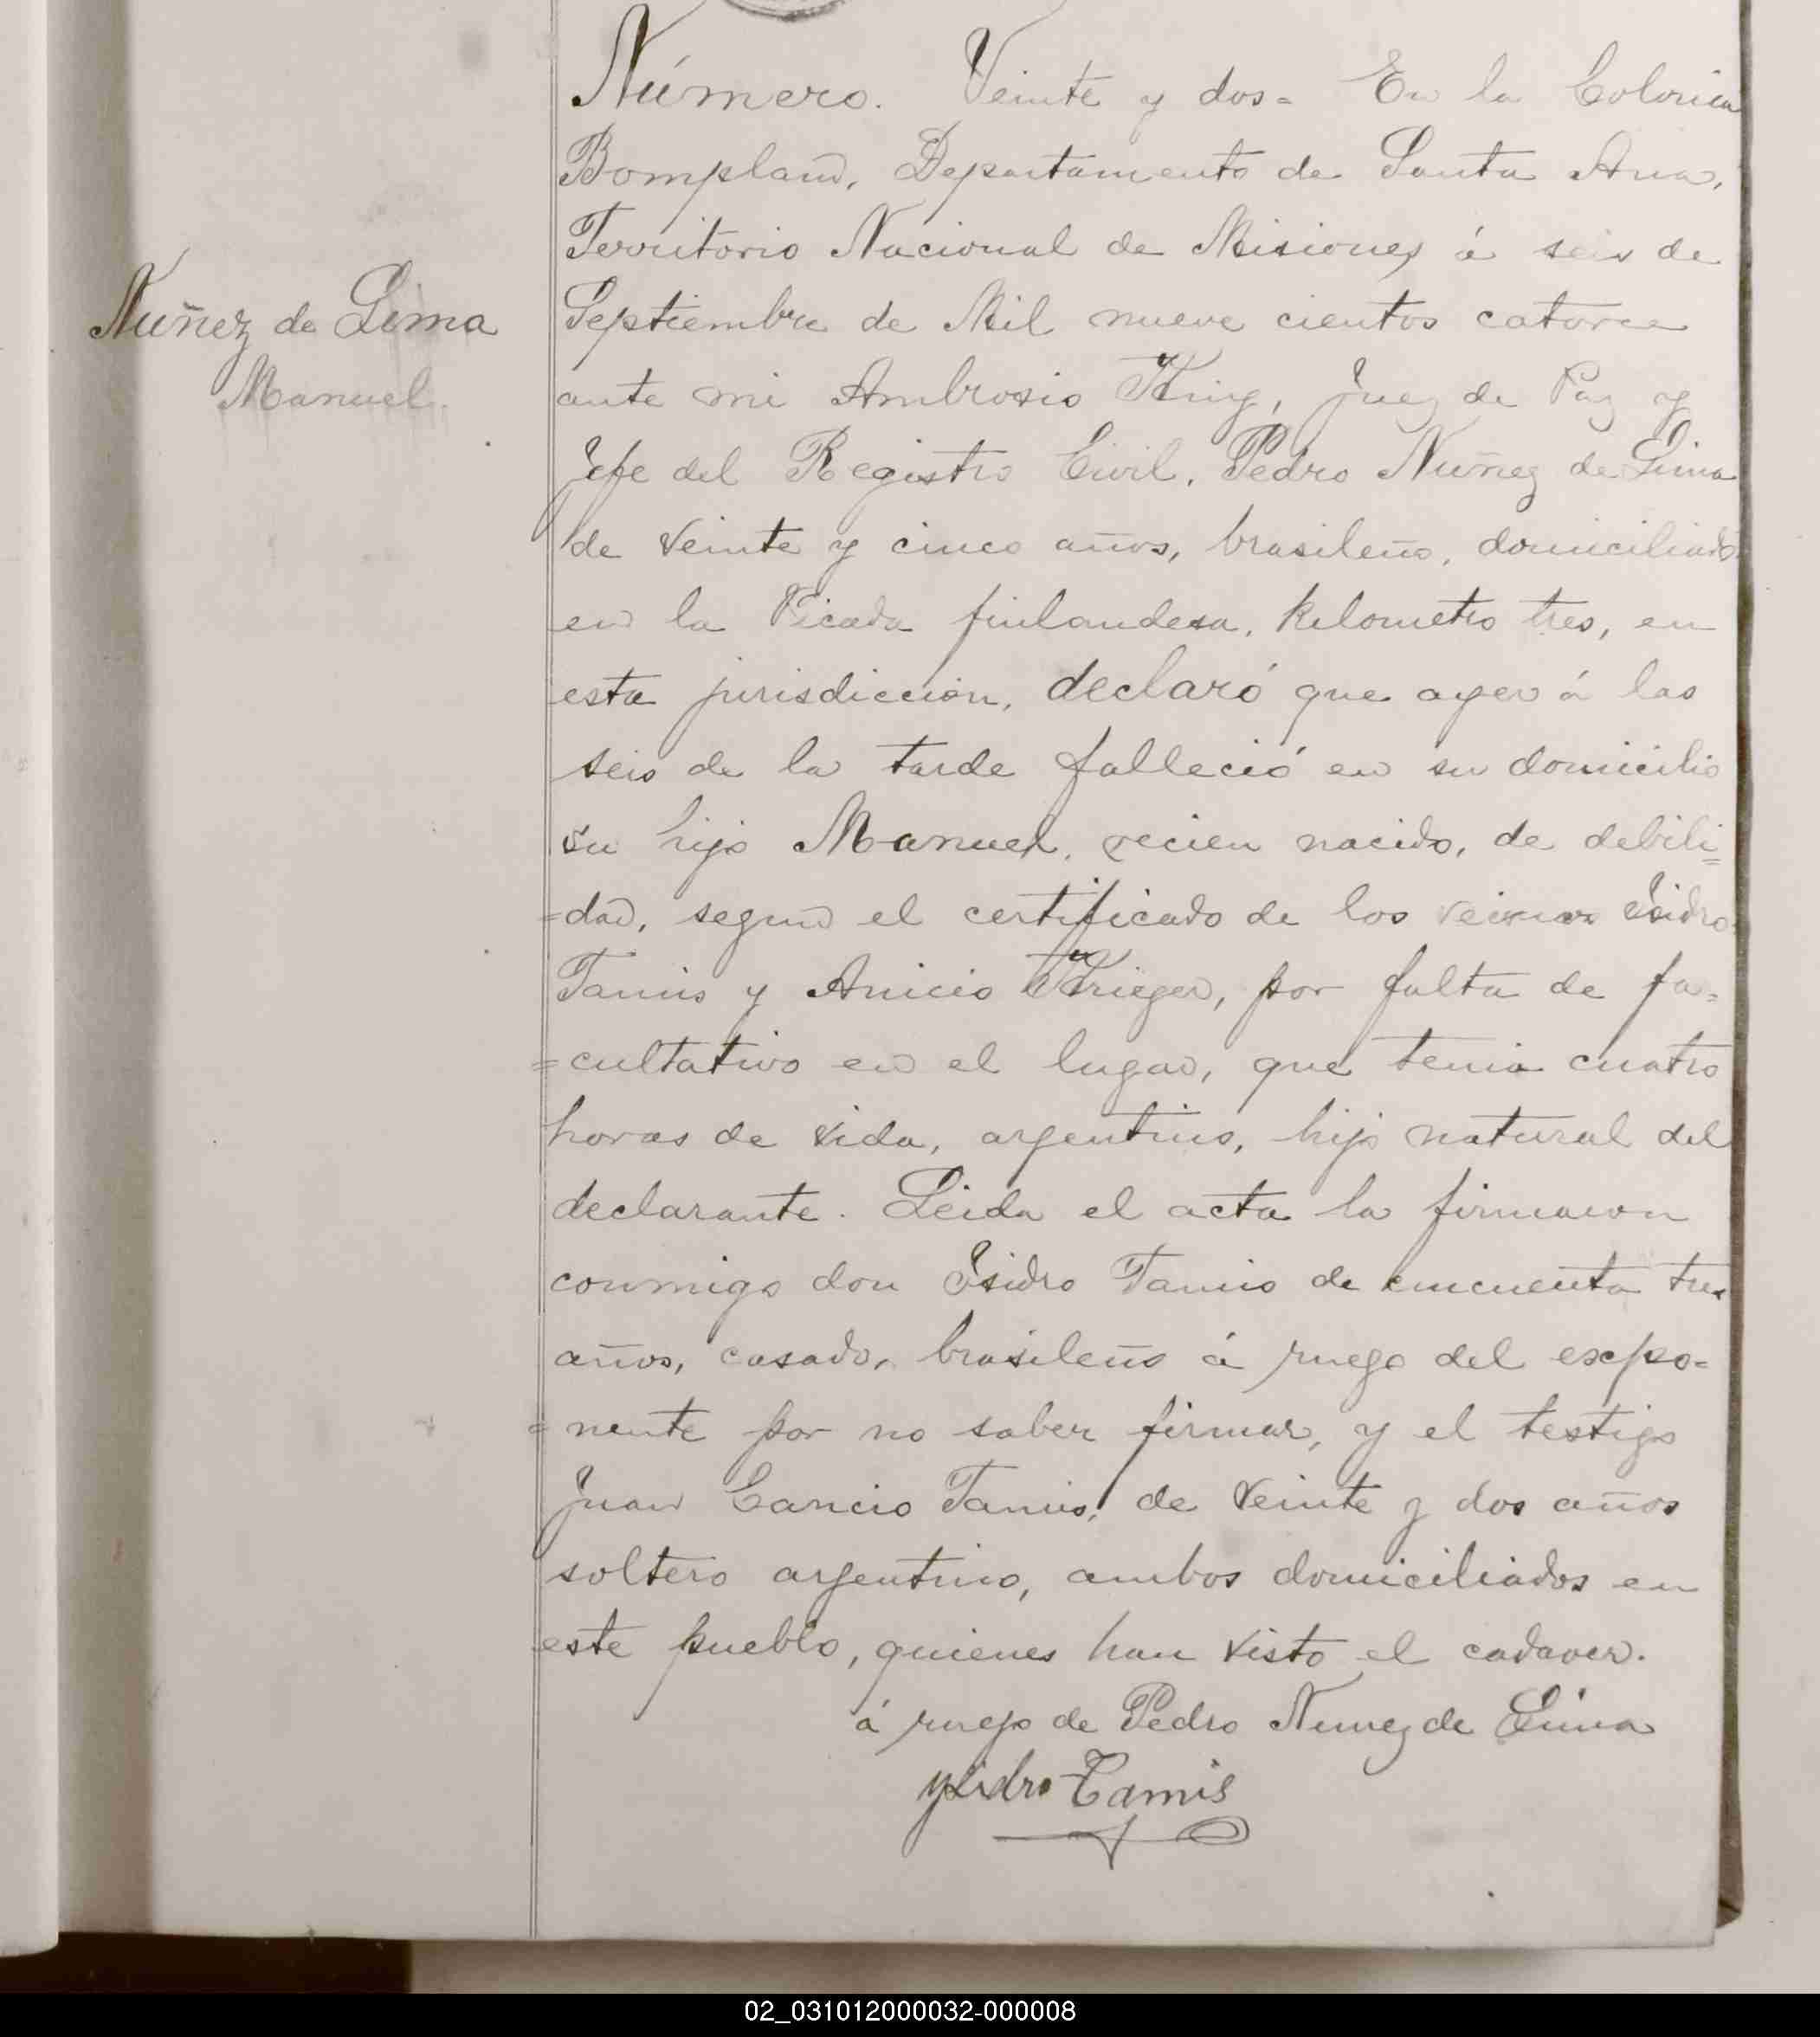 Número. Veinte y dos = En la Colonia
Bompland, Departamento de Santa Ana,
Territorio Nacional de Misiones á seis de
Nuñez de Lima
Manuel.
Septiembre de Mil nueve cientos catorce
ante mi Ambrosio King, Juez de Paz y
Jefe del Registro Civil, Pedro Nuñez de Lima
de veinte y cinco años, brasileño, domiciliado
en la Picada finlandesa, kilometro tres, en
esta jurisdiccion, declaró que ayer á las
seis de la tarde falleció en su domicilio
su hijo Manuel, recien nacido, de debili=
=dad, segun el certificado de los vecinos Isidro
Tamis y Anicio Krieger, por falta de fa=
=cultativo en el lugar, que tenia cuatro
horas de vida, argentino, hijo natural del
declarante. Leida el acta la firmaron
conmigo don Isidro Tamis de cincuenta tres
años, casado, brasileño á ruego del expo=
=nente por no saber firmar, y el testigo
Juan Cancio Tamis, de veinte y dos años
soltero argentino, ambos domiciliados en
este pueblo, quienes han visto el cadaver.
á ruego de Pedro Nunez de Lima
Ysidro Tamis
02_031012000032-000008